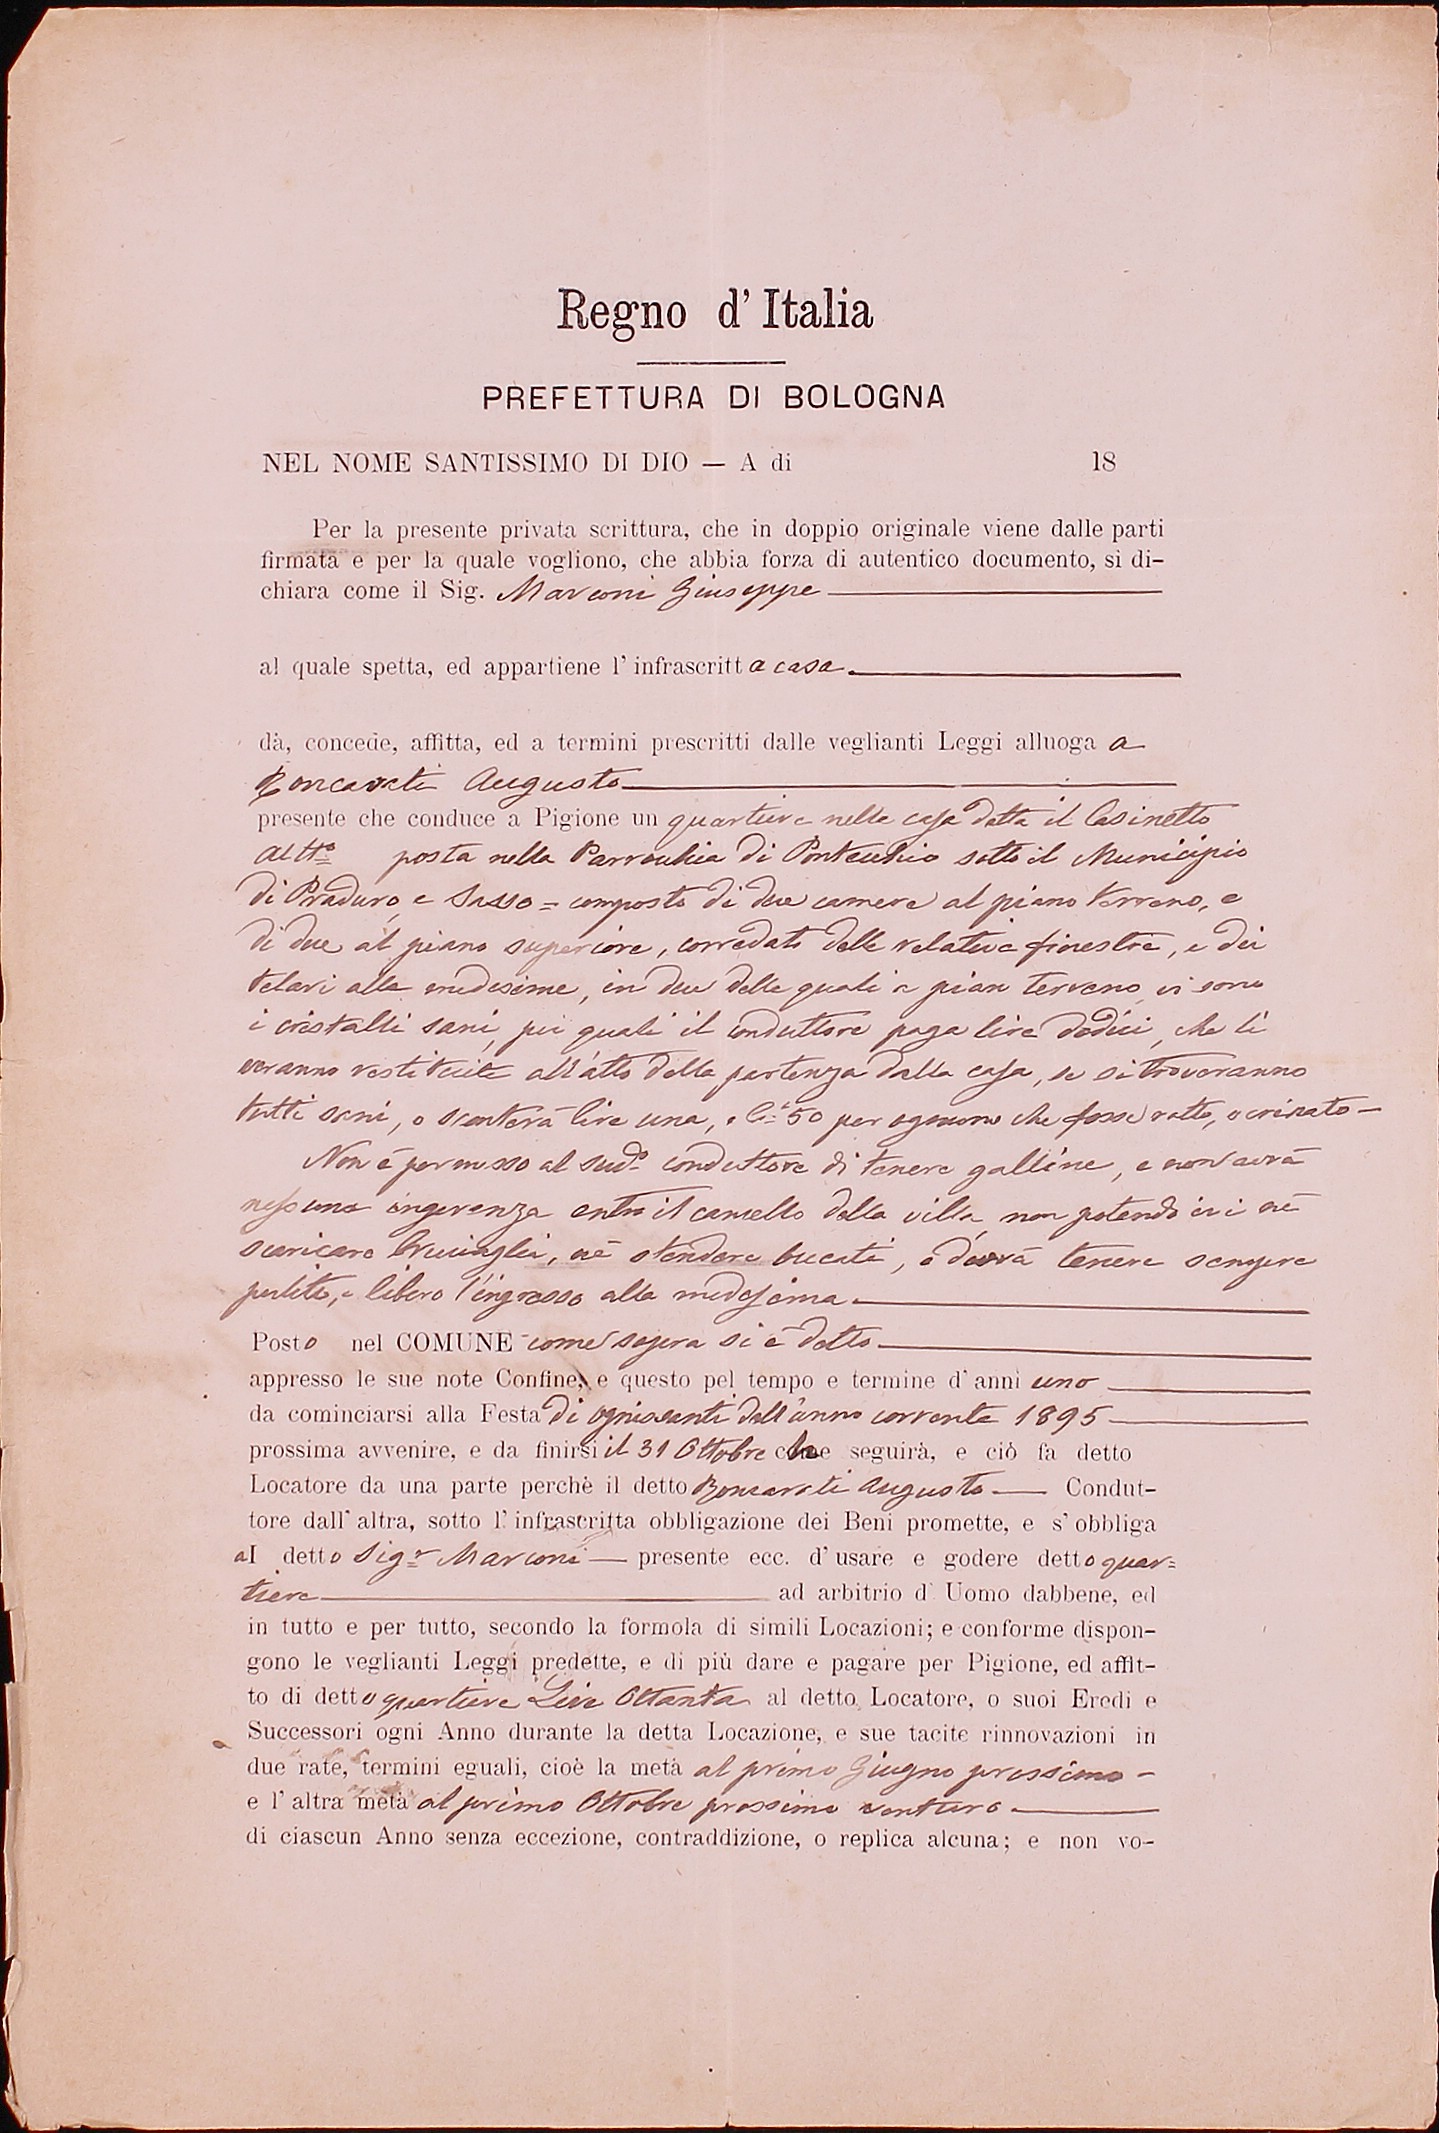 Regno d'Italia
PREFETTURA DI BOLOGNA
NEL NOME SANTISSIMO DI DIO — A di 18
Per la presente privata scrittura, che in doppio originale viene dalle parti
firmata e per la quale vogliono, che abbia forza di autentico documento, si di-
chiara come il Sig. Marconi Giuseppe
al quale spetta, ed appartiene l'infrascritta casa
dà, concede, affitta, ed a termini prescritti dalle veglianti Leggi alluoga a
Roncarati Augusto
presente che conduce a Pigione un quartiere nella casa detta il Casinetto
posta nella Parrochia di Pontecchio sotto il Municipio
di Praduro, e Sasso = composto di due camere al piano terreno, e
di due al piano superiore, corredato delle relative finestre, e dei
telari alle medesime, in due delle quali a pian terreno vi sono
i cristalli sani, pei quali il conduttore paga lire dodici, che li
veranno restituite all'atto della partenza dalla casa, se si troveranno
tutti sani, o sconterà lire una, e c.i 50 per ognuno che fosse rotto, o crinato —
Non è permesso al sud.o conduttore di tenere galline, e non avrà
nessuna ingerenza entro il cancello della villa non potendo ivi nè
scaricare , nè stendere bucati, e dovrà tenere sempre
pulito, e libero l'ingresso alla medesima.
Posto nel COMUNE come sopra si è detto
appresso le sue note Confine, e questo pel tempo e termine d'anni uno
da cominciarsi alla Festa di Ognisanti dell'anno corrente 1895
prossima avvenire, e da finirsi il 31 Ottobre che seguirà, e ciò fa detto
Locatore da una parte perchè il detto Roncarati Augusto — Condut-
tore dall'altra, sotto l'infrascritta obbligazione dei Beni promette, e s'obbliga
al detto Sig.r Marconi — presente ecc. d'usare e godere detto quar=
tiere ad arbitrio d'Uomo dabbene, ed
in tutto e per tutto, secondo la formola di simili Locazioni; e conforme dispon-
gono le veglianti Leggi predette, e di più dare e pagare per Pigione, ed affit-
to di detto quartiere Lire Ottanta al detto Locatore, o suoi Eredi e
Successori ogni Anno durante la detta Locazione, e sue tacite rinnovazioni in
due rate, termini eguali, cioè la metà al primo Giugno prossimo —
e l'altra metà al primo Ottobre prossimo venturo
di ciascun Anno senza eccezione, contraddizione, o replica alcuna; e non vo-